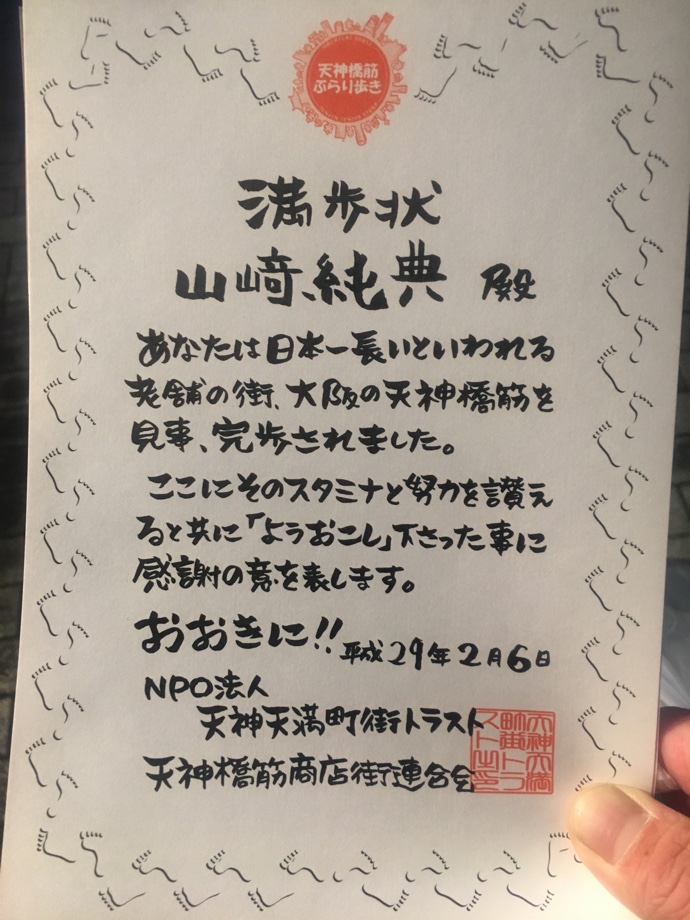 天神橋筋
ぶらり歩き
満歩状
山﨑純典 殿
あなたは日本一長いといわれる
老舗の街、大阪の天神橋筋を
見事、完歩されました。
ここにそのスタミナと努力を讃え
ると共に「ようおこし」下さった事に
感謝の意を表します。
おおきに!!
平成29年2月6日
NPO法人
天神天満町街トラスト
天神橋筋商店街連合会
天神天満
町街トラ
スト之印